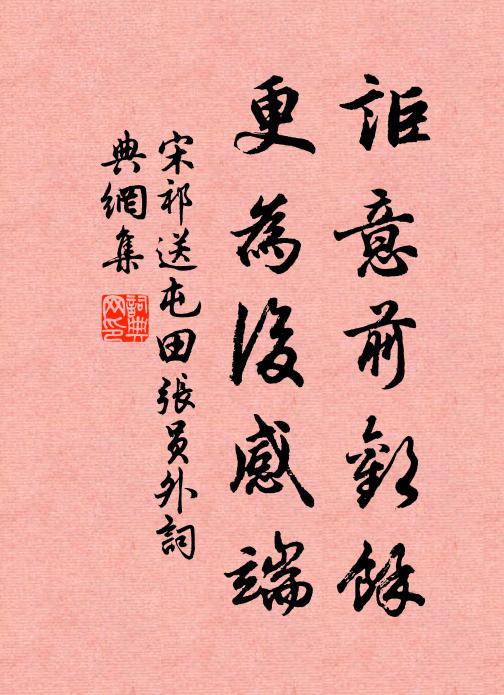 詎意前歡餘
更為後感端
宋祁送屯田張員外詞
典網集
詞典網印